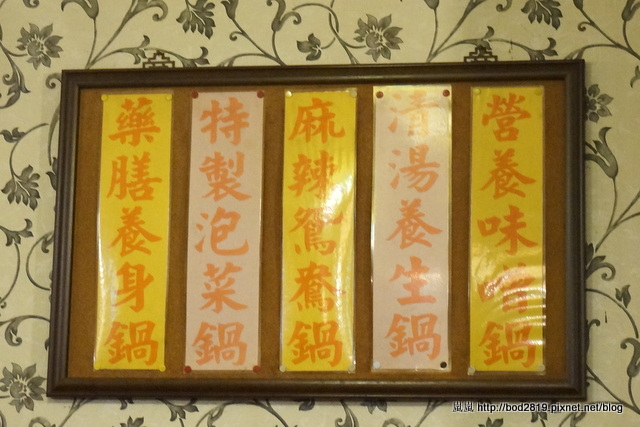 營養味噌鍋
清湯養生鍋
麻辣鴛鴦鍋
特製泡菜鍋
藥膳養身鍋
嵐嵐 http://bod2819.pixnet.net/blog